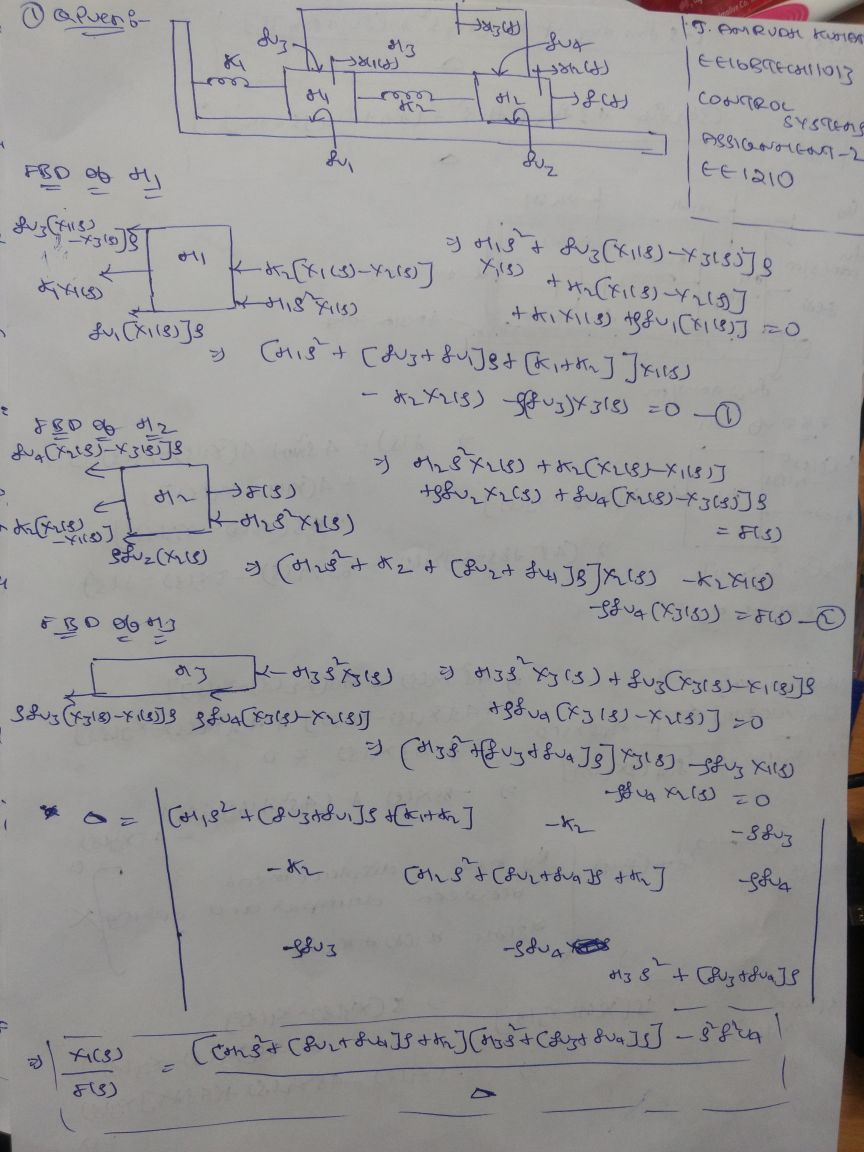 ① Given:-
J. ANIRUDH KUMAR
EE16BTECH11013
CONTROL SYSTEMS
ASSIGNMENT-2
EE1210
fv3
M3
→x3(s)
fv4
K1
→x1(s)
→x2(s)
M1
K2
M2
→f(s)
fv1
fv2
FBD of M1
fv3[X1(s)-X3(s)]s
M1
K1X1(s)
←K2[X1(s)-X2(s)]
←M1s²X1(s)
fv1[X1(s)]s
⇒ M1s² X1(s) + fv3[X1(s)-X3(s)]s
+ K2[X1(s)-X2(s)]
+ K1X1(s) + sfv1[X1(s)] = 0
⇒ [M1s² + [fv3+fv1]s + [K1+K2]]X1(s)
- K2X2(s) - s(fv3)X3(s) = 0 —①
FBD of M2
fv4[X2(s)-X3(s)]s
M2
→F(s)
←M2s²X2(s)
K2[X2(s)-X1(s)]
sfv2(X2(s)
⇒ M2s²X2(s) + K2[X2(s)-X1(s)]
+sfv2X2(s) + fv4[X2(s)-X3(s)]s
= F(s)
⇒ [M2s² + K2 + [fv2+fv4]s]X2(s) - K2X1(s)
-sfv4(X3(s)) = F(s) —②
FBD of M3
M3
←M3s²X3(s)
sfv3[X3(s)-X1(s)]s sfv4[X3(s)-X2(s)]
⇒ M3s²X3(s) + fv3[X3(s)-X1(s)]s
+sfv4[X3(s)-X2(s)] = 0
⇒ [M3s²+[fv3+fv4]s]X3(s) - sfv3X1(s)
-sfv4X2(s) = 0
Δ =
[M1s²+[fv3+fv1]s+[K1+K2] -K2 -sfv3
-K2 [M2s²+[fv2+fv4]s+K2] -sfv4
-sfv3 -sfv4 M3s²+[fv3+fv4]s
⇒ X1(s)/F(s) = [[M2s²+[fv2+fv4]s+K2][M3s²+[fv3+fv4]s] - s²f²v4 / Δ